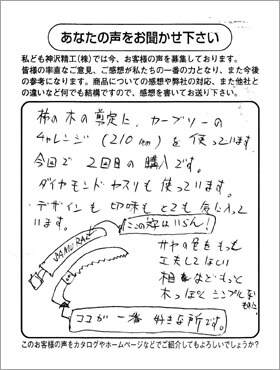 あなたの声をお聞かせ下さい
私ども神沢精工(株)では今、お客様の声を募集しております。
皆様の率直なご意見、ご感想が私たちの一番の力となり、また今後
の参考になります。商品についての感想や弊社の対応、また他社と
の違いなど何でも結構ですので、感想を書いてお送り下さい。
柿の木の剪定に、カーブソーの
チャレンジ(210mm)を使っています
今回で2回目の購入です。
ダイヤモンドヤスリも使っています。
デザインも切味もとても気に入って
います。
この字はいらん!
SAMURAI
サヤの色をもっと
工夫してほしい
など もっと
木っぽく シンプルな
ココが一番 好きな所です。
このお客様の声をカタログやホームページなどでご紹介してもよろしいでしょうか?